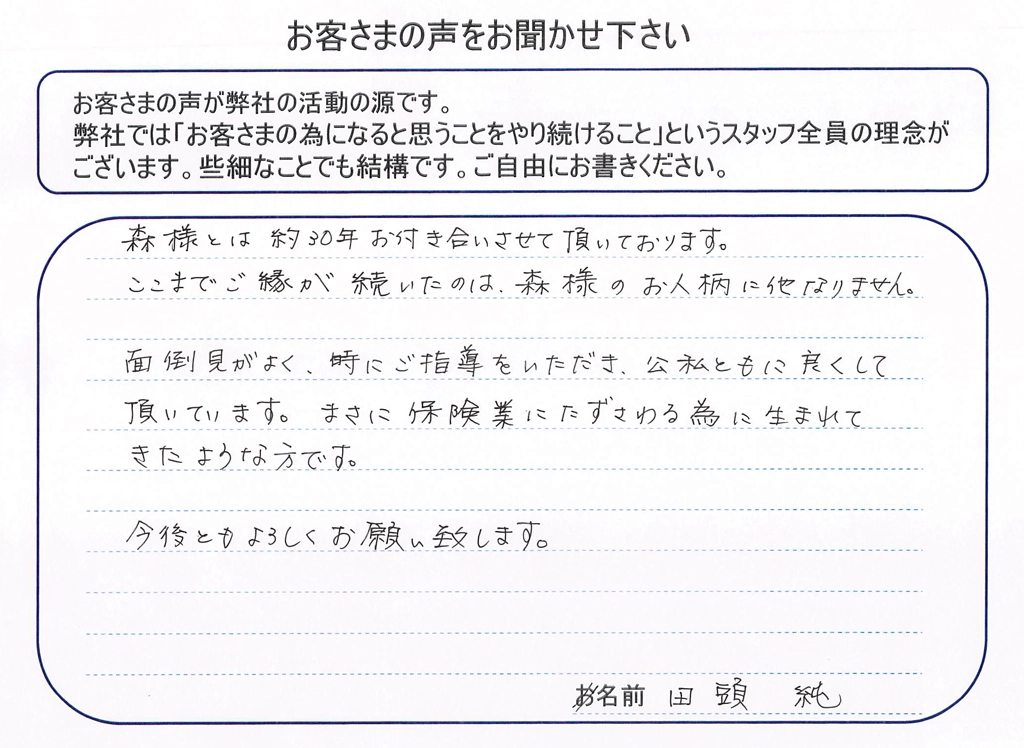 お客さまの声をお聞かせ下さい
お客さまの声が弊社の活動の源です。
弊社では「お客さまの為になると思うことをやり続けること」というスタッフ全員の理念が
ございます。些細なことでも結構です。ご自由にお書きください。
森様とは約30年お付き合いさせて頂いております。
ここまでご縁が続いたのは、森様のお人柄に他なりません。
面倒見がよく、時にご指導をいただき、公私ともに良くして
頂いています。まさに保険業にたずさわる為に生まれて
きたような方です。
今後ともよろしくお願い致します。
お名前 田頭 純